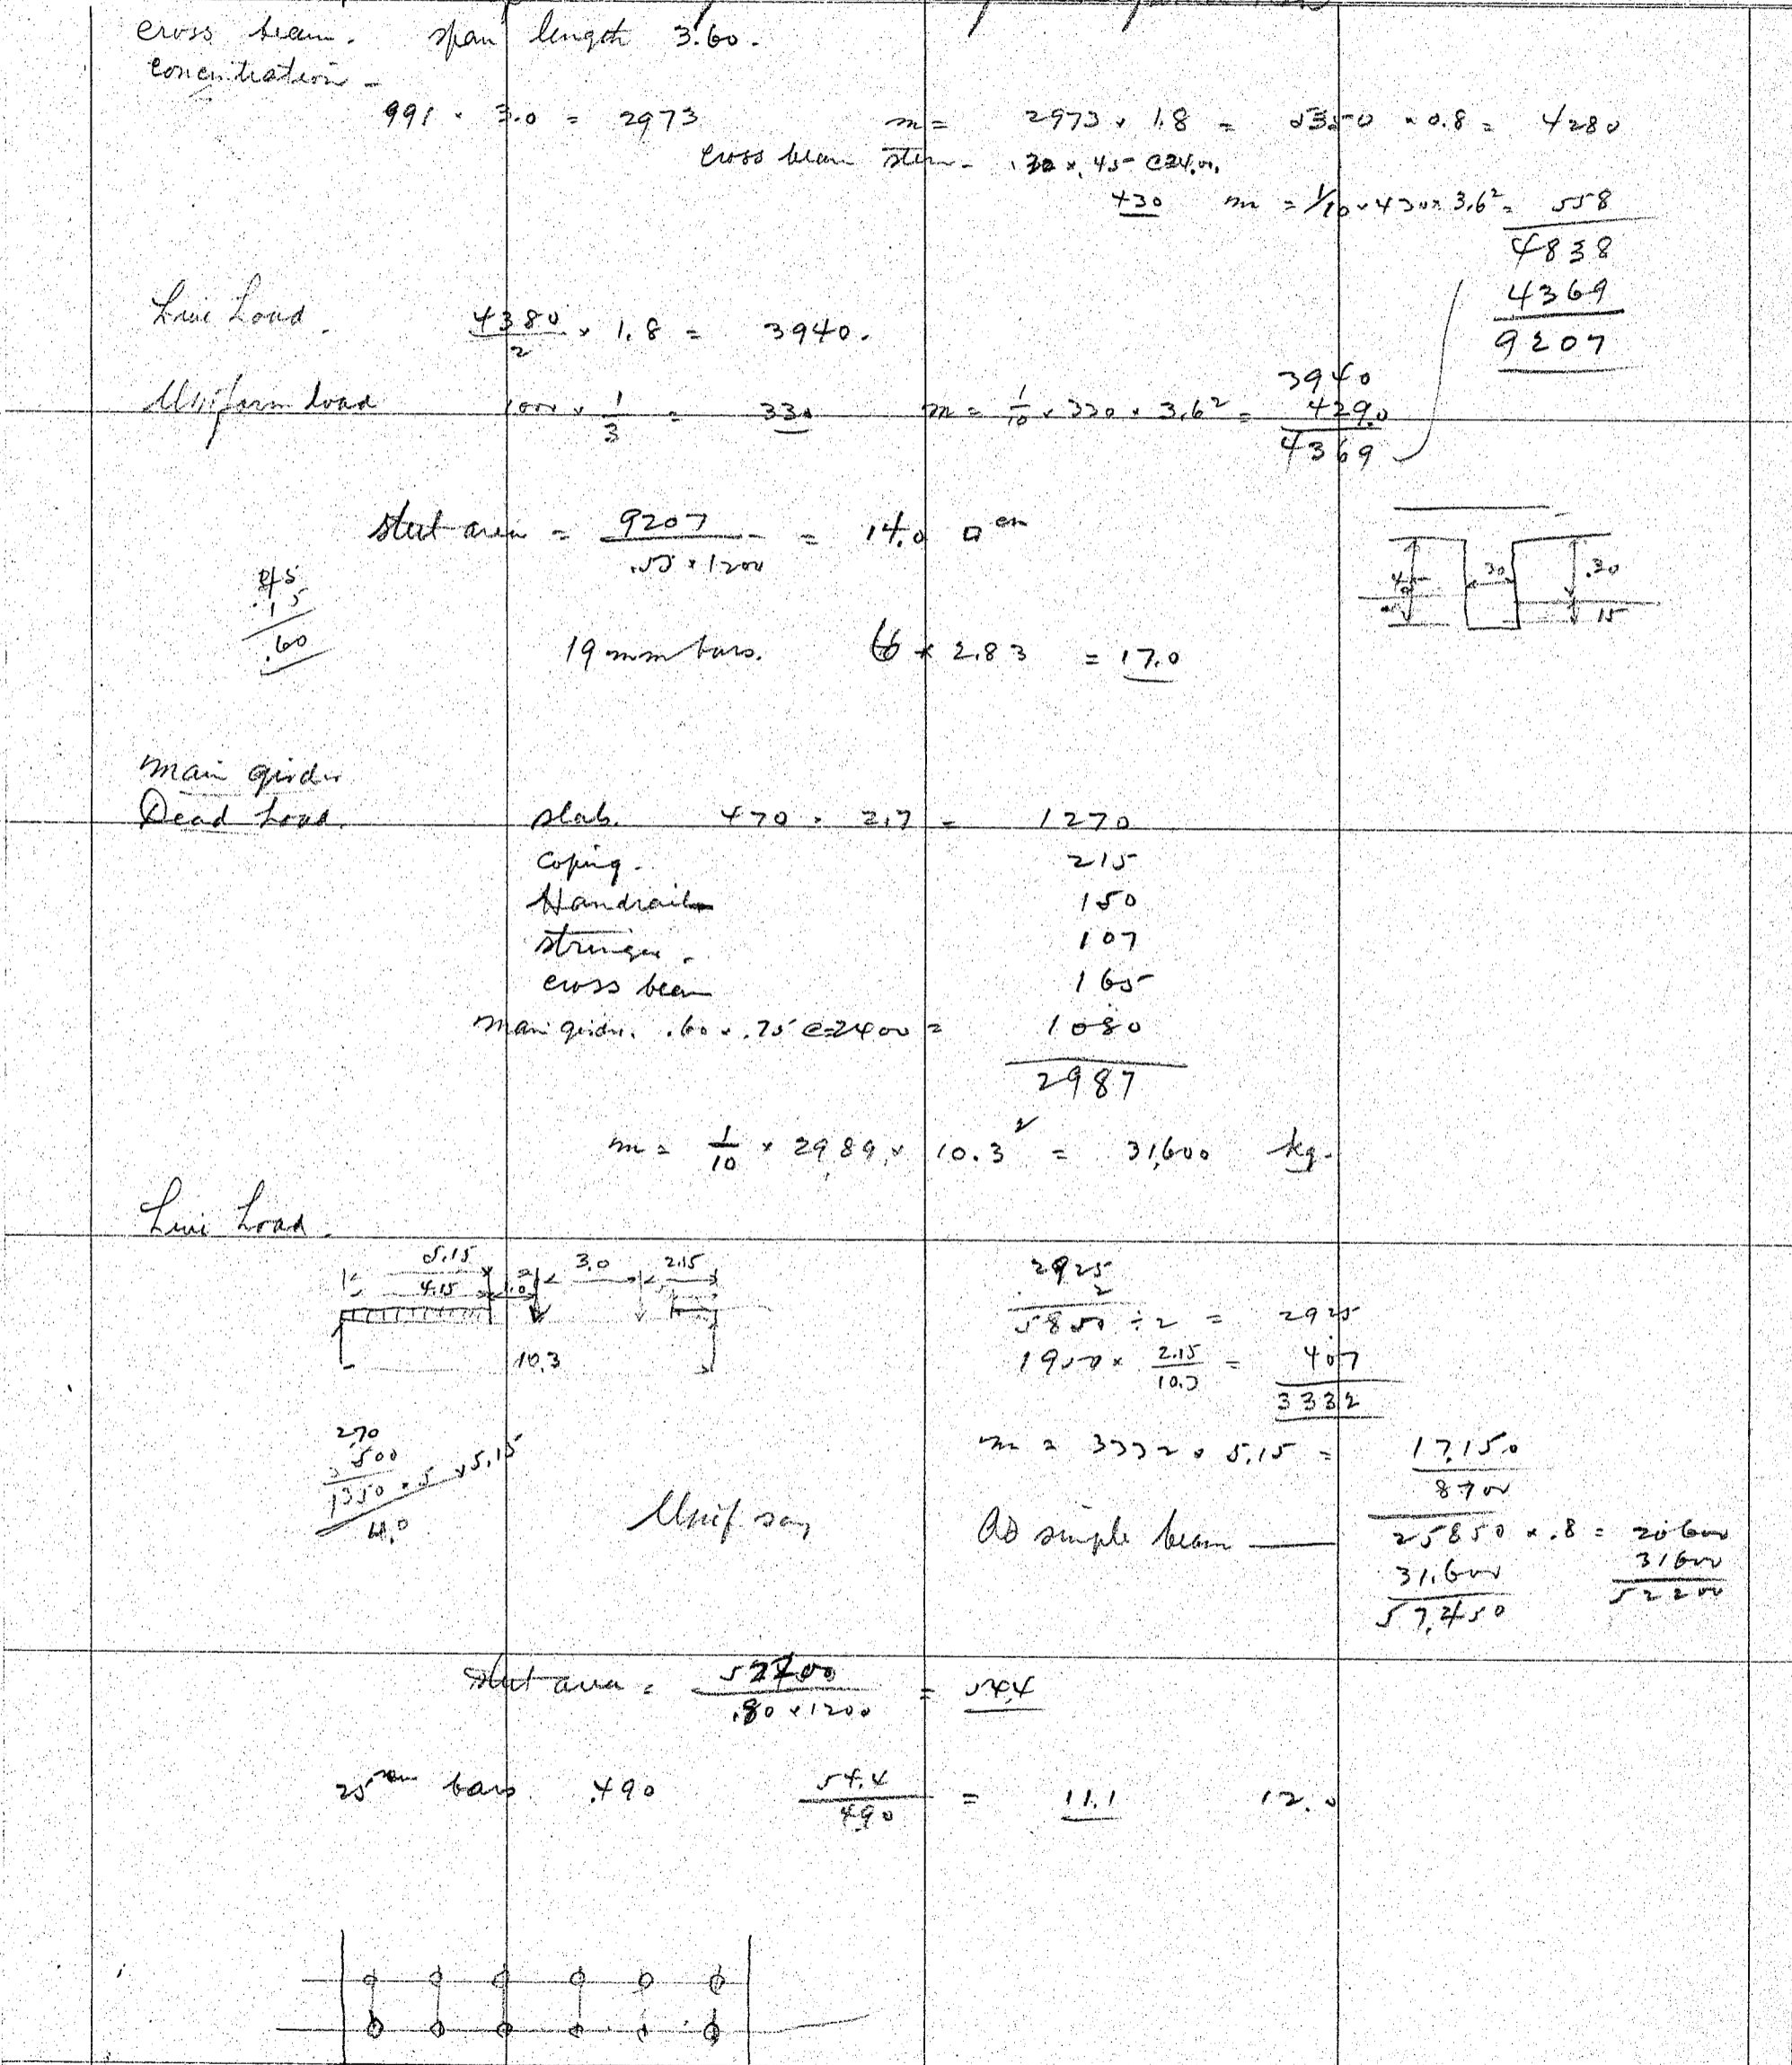 cross beam. span length 3.60.
concentration -
991 × 3.0 = 2973 m = 2973 × 1.8 = 5350 × 0.8 = 4280
cross beam stem - .30 × .45 @ 24.00.
430 m = 1/10 × 430 × 3.6² = 558
4838
4369
9207
Live Load. 4380/2 × 1.8 = 3940.
3940
Uniform load 1000 × 1/3 = 330 m = 1/10 × 330 × 3.6² = 429.0
4369
steel area = 9207 / .55 × 1200 = 14.0 □ cm
.45
.15
.60
.30 .30
15
19 mm bars. 6 × 2.83 = 17.0
Main girder
Dead Load. slab. 470 × 2.7 = 1270
coping. 215
Handrail 150
stringer. 107
cross beam 165
Main girder. .60 × .75 @ 2400 = 1080
2987
m = 1/10 × 2989 × 10.3² = 31,600 kg.
Live Load.
5.15 3.0 2.15
4.15 1.0
10.3
2925
2
5850 ÷ 2 = 2925
1950 × 2.15/10.3 = 407
3332
m = 3332 × 5.15 = 17,150
270
500
1350 × 5 × 5.15
4.0
8700
Unif say As simple beam — 25850 × .8 = 20600
31,600 31600
57,450 52200
steel area = 52200 / .80 × 1200 = 54.4
25 mm bars. 4.90 54.4 / 4.90 = 11.1 12.0